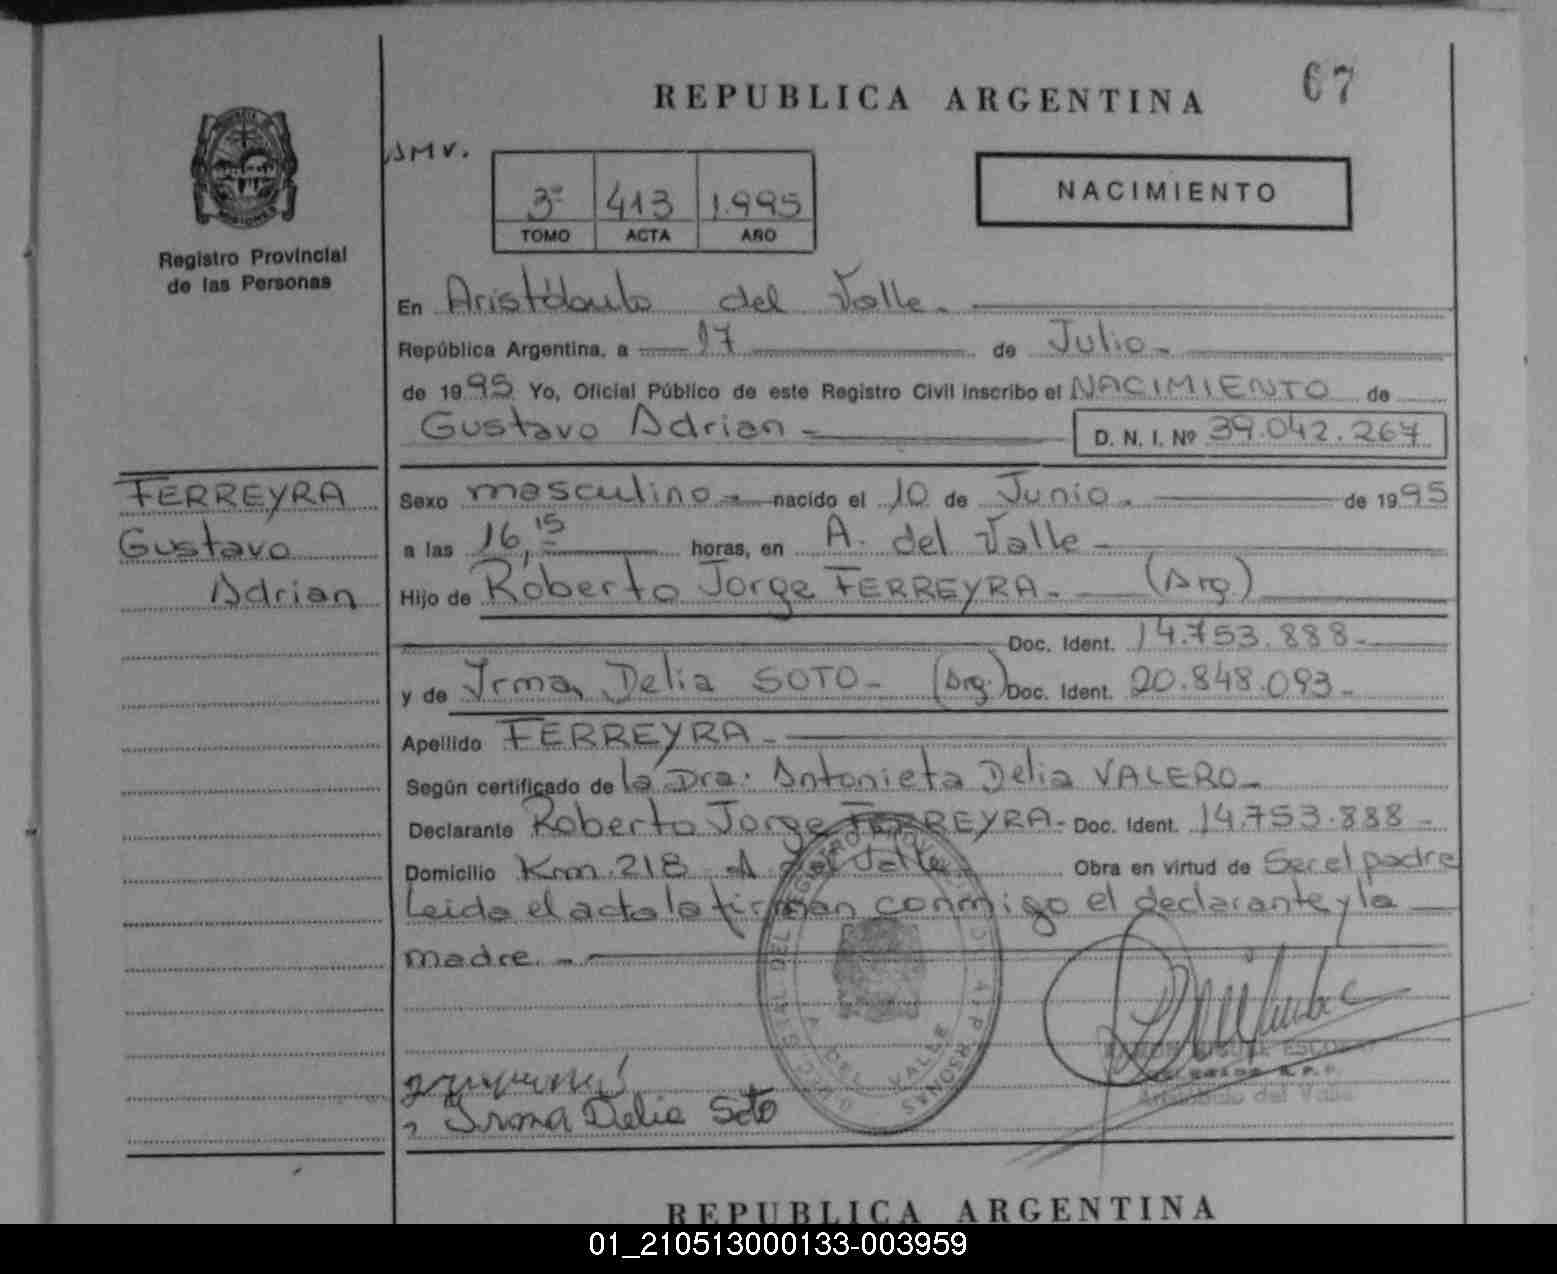 67
REPUBLICA ARGENTINA
SMV.
3º 413 1.995
TOMO ACTA AÑO
NACIMIENTO
Registro Provincial
de las Personas
En Aristóbulo del Valle.
República Argentina, a 17 de Julio.
de 1995 Yo, Oficial Público de este Registro Civil inscribo el NACIMIENTO de
Gustavo Adrian
D. N. I. Nº 39.042.267
FERREYRA
Gustavo
Adrian
Sexo masculino nacido el 10 de Junio. de 1995
a las 16,15 horas, en A. del Valle
Hijo de Roberto Jorge FERREYRA. (Arg.)
Doc. Ident. 14.753.888
y de Irma Delia SOTO (Arg.) Doc. Ident. 20.848.093
Apellido FERREYRA
Según certificado de la Dra. Antonieta Delia VALERO
Declarante Roberto Jorge FERREYRA Doc. Ident. 14.753.888
Domicilio Km. 218 A del Valle Obra en virtud de Ser el padre
Leida el acta la firman conmigo el declarante y la
madre.
Irma Delia Soto
A. DEL VALLE
Aristóbulo del Valle
REPUBLICA ARGENTINA
01_210513000133-003959